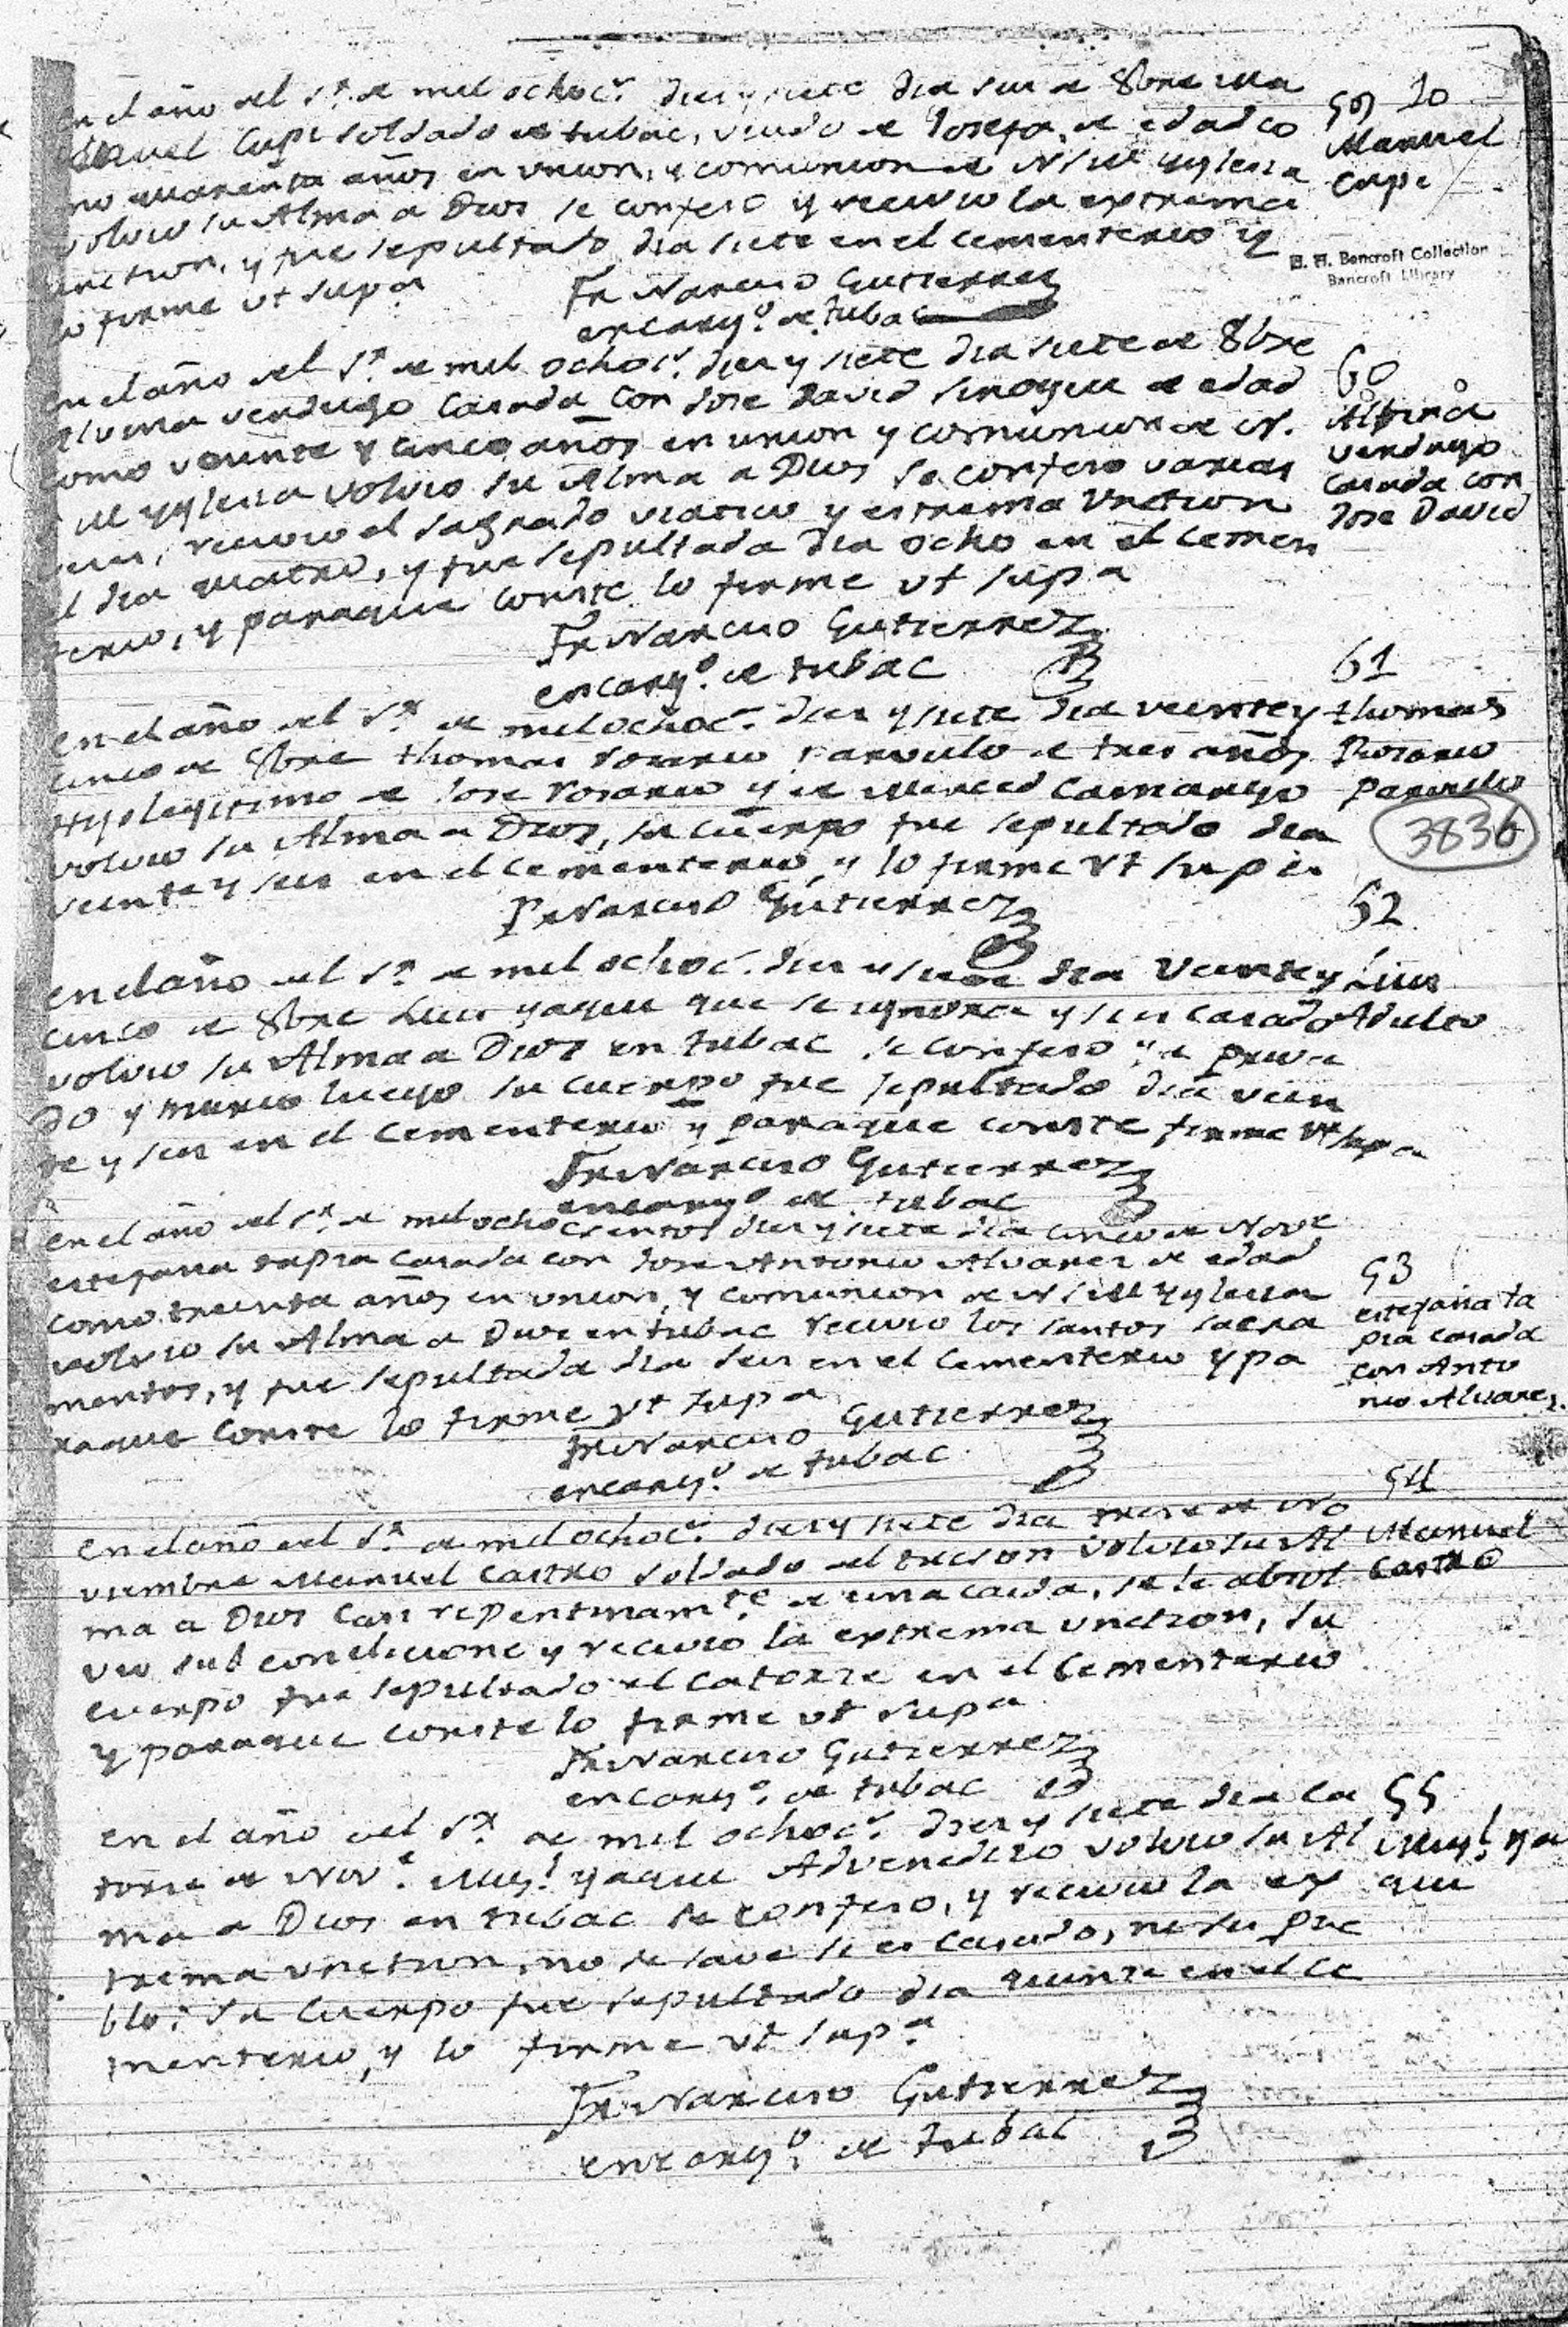 en el año del Sr. de mil ochoc.s diez y siete dia seis de 8bre Ma
nuel Cupi soldado de tubac, viudo de Josefa, de edad co
mo quarenta años en union, y comunion de N S M Yglesia
volvio su Alma a Dios se confeso y recivio la extrema
unction, y fue sepultado dia siete en el cementerio y
lo firme ut supa
Fr Narciso Gutierrez
encarg.o de tubac
59 10
Manuel
Cupi
H. H. Bancroft Collection
Bancroft Library
en el año del Sr. de mil ochoc.s diez y siete dia siete de 8bre
Alvina verdugo casada con Jose David Sinoqui de edad
como veinte y cinco años en union y comunion de N.
M Yglesia volvio su Alma a Dios se confeso varias
veces, recivio el sagrado viatico y estrema Unction
el dia quatro, y fue sepultada dia ocho en el cemen
terio, y paraque conste lo firme ut supa
Fr Narciso Gutierrez
encarg.o de tubac
60
Albina
verdugo
casada con
Jose David
en el año del Sr. de mil ochoc.s diez y siete dia veinte y
cinco de 8bre thomas rosario parvulo de tres años
Hijo legitimo de Jose rosario y de Merced Camargo
volvio su Alma a Dios, su cuerpo fue sepultado dia
veinte y seis en el cementerio, y lo firme ut supa
Fr Narciso Gutierrez
61
thomas
Rosario
Parvulo
3836
en el año del Sr. de mil ochoc.s diez y siete dia Veinte y
cinco de 8bre Luis yaqui que se ignora y si es casado
volvio su Alma a Dios en tubac se confeso y a priva
do y murio luego su cuerpo fue sepultado dia vein
te y seis en el cementerio y paraque conste firme ut supa
Fr Narciso Gutierrez
encarg.o de tubac
52
Luis
Adulto
en el año del Sr. de mil ochocientos diez y siete dia cinco de Nove
estefana tapia casada con Jose Antonio Alvarez de edad
como treinta años en union, y comunion de N S M Yglesia
volvio su Alma a Dios en tubac recivio los santos sacra
mentos, y fue sepultada dia seis en el cementerio y pa
raque conste lo firme ut supa
Fr Narciso Gutierrez
encarg.o de tubac
53
estefana ta
pia casada
con Anto
nio Alvarez
en el año del Sr. de mil ochoc.s diez y siete dia trese de No
viembre Manuel Castro soldado del tucson volvio su Al
ma a Dios casi repentinam.te de una caida, se le absol
vio sub conditione y recivio la extrema unction, su
cuerpo fue sepultado el catorze en el Cementerio
y paraque conste lo firme ut supa
Fr Narciso Gutierrez
encarg.o de tubac
54
Manuel
Castro
en el año del Sr. de mil ochoc.s diez y siete dia ca
torse de Nov.e Mig.l yaqui Advenedizo volvio su Al
ma a Dios en tubac se confeso, y recivio la ex
trema unction, no se save si es casado, ni su pue
blo: su cuerpo fue sepultado dia quinze en el ce
menterio, y lo firme ut sup.a
Fr. Narciso Gutierrez
encarg.o de tubac
55
Mig.l ya
qui